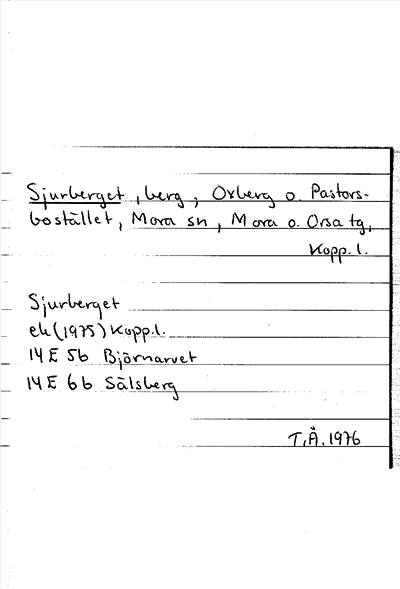 Sjurberget, berg, Oxberg o. Pastors-
bostället, Mora sn, Mora o. Orsa tg,
Kopp. l.
Sjurberget
ek (1975) Kopp. l.
14 E 5b Björnarvet
14 E 6b Sälsberg
T.Å. 1976